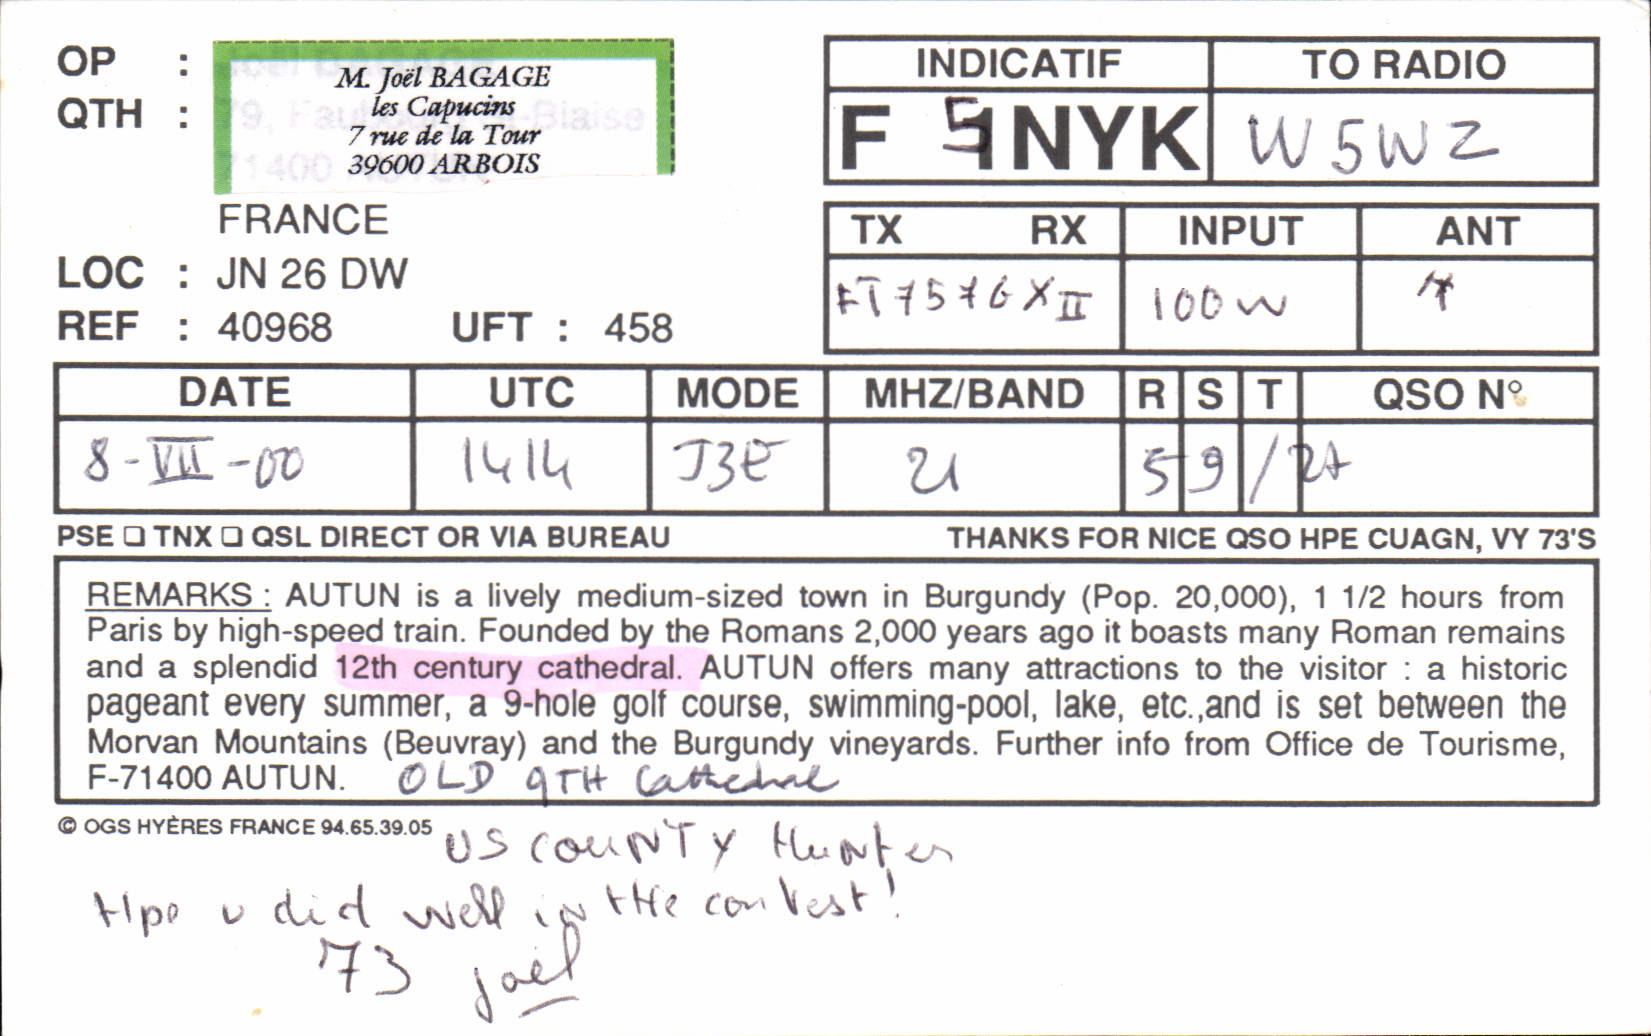 OP :
M. Joël BAGAGE
les Capucins
QTH :
7 rue de la Tour
39600 ARBOIS
FRANCE
LOC : JN 26 DW
REF : 40968 UFT : 458
INDICATIF TO RADIO
F 5NYK W5WZ
TX RX INPUT ANT
FT757GXII 100W
DATE UTC MODE MHZ/BAND R S T QSO N°
8-VII-00 1414 J3E 21 5 9 /
PSE ☐ TNX ☐ QSL DIRECT OR VIA BUREAU THANKS FOR NICE QSO HPE CUAGN, VY 73'S
REMARKS : AUTUN is a lively medium-sized town in Burgundy (Pop. 20,000), 1 1/2 hours from
Paris by high-speed train. Founded by the Romans 2,000 years ago it boasts many Roman remains
and a splendid 12th century cathedral. AUTUN offers many attractions to the visitor : a historic
pageant every summer, a 9-hole golf course, swimming-pool, lake, etc.,and is set between the
Morvan Mountains (Beuvray) and the Burgundy vineyards. Further info from Office de Tourisme,
F-71400 AUTUN. OLD QTH Cathedral
© OGS HYÈRES FRANCE 94.65.39.05
US COUNTY Hunter
Hpe u did well in tHe contest!
73 Joël